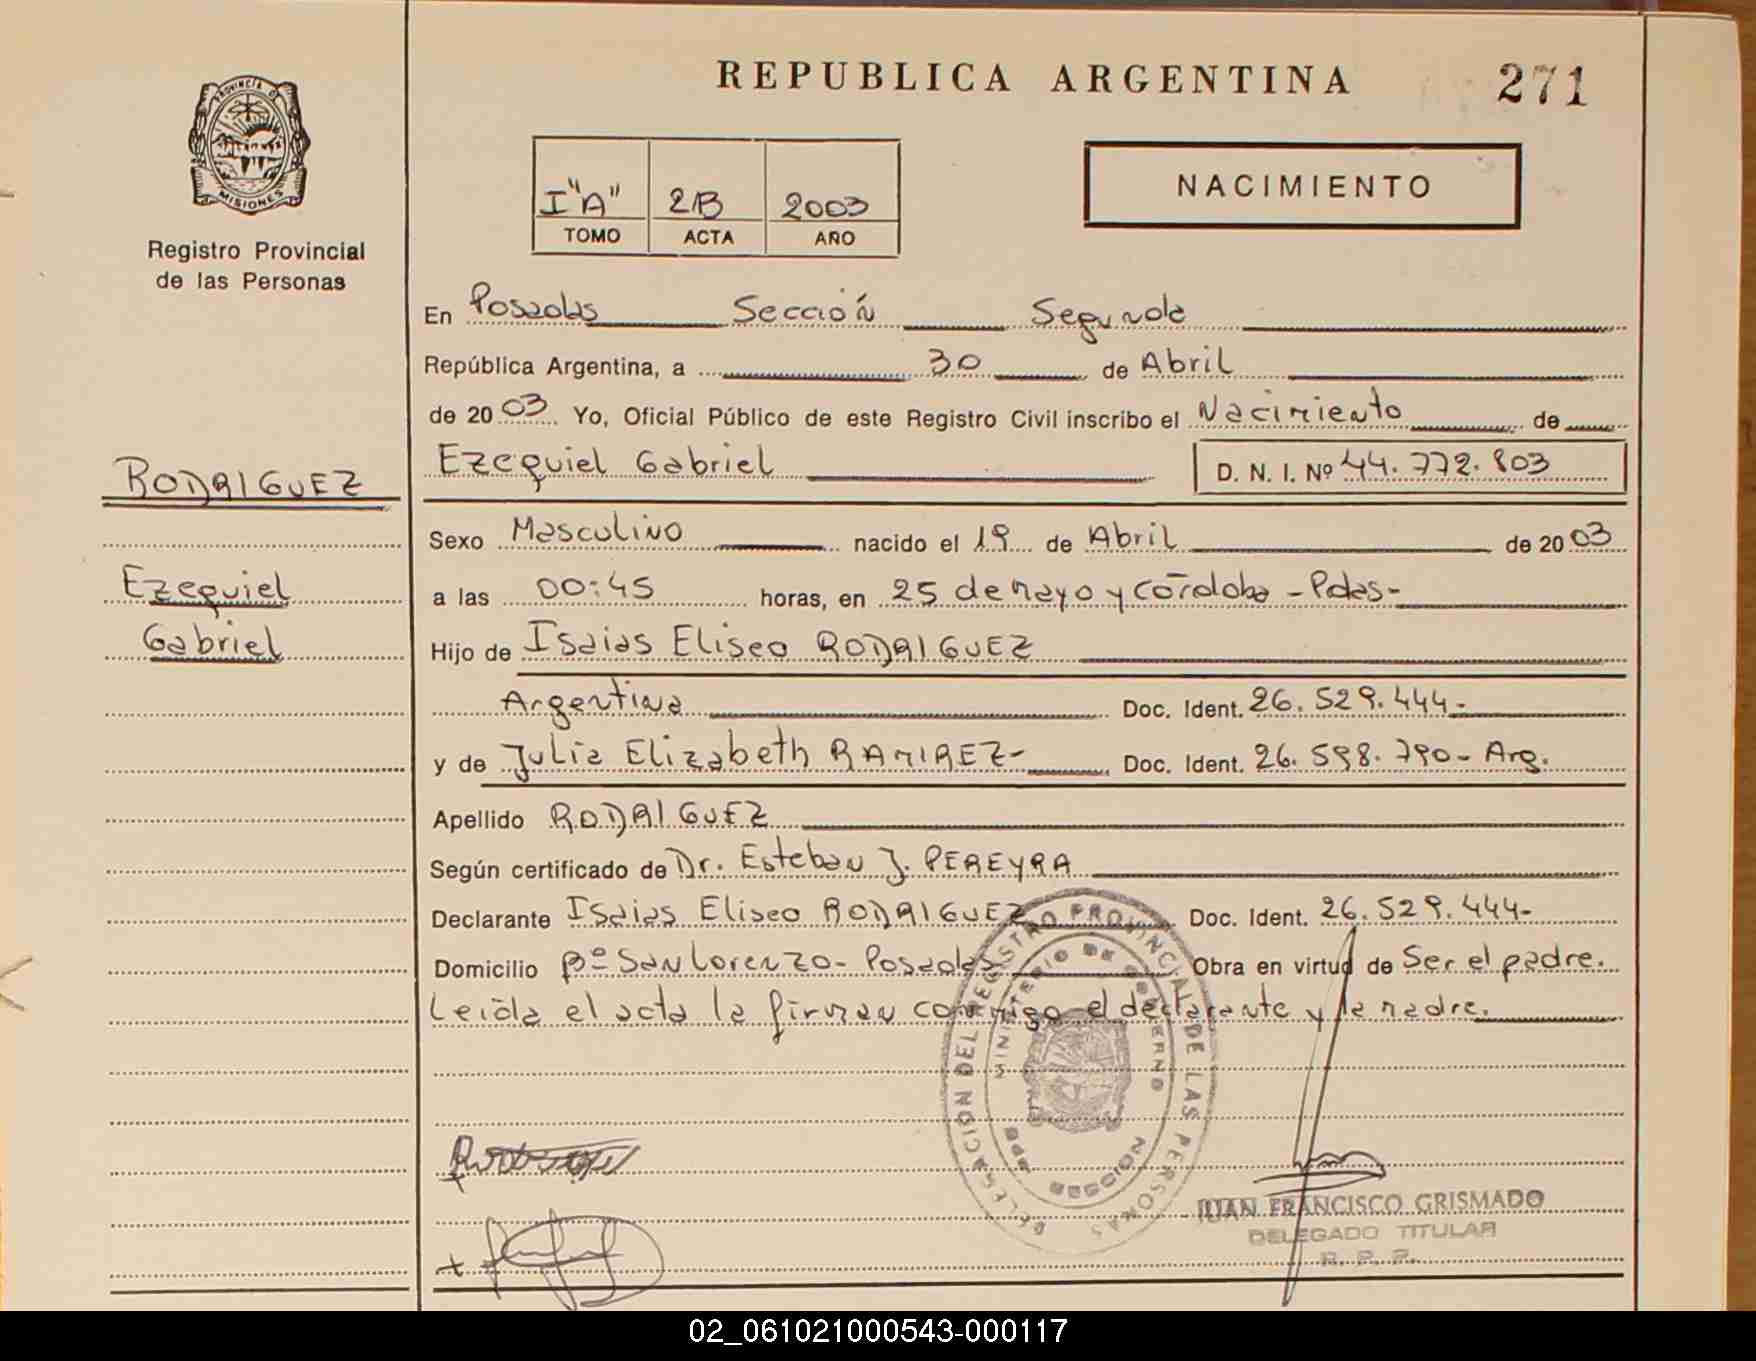 REPUBLICA ARGENTINA
271
PROVINCIA DE
MISIONES
Registro Provincial
de las Personas
I "A" 213 2003
TOMO ACTA AÑO
NACIMIENTO
En Posadas Sección Segunda
República Argentina, a 30 de Abril
de 2003 Yo, Oficial Público de este Registro Civil inscribo el Nacimiento de
Ezequiel Gabriel D. N. I. Nº 44.772.803
RODRIGUEZ
Ezequiel
Gabriel
Sexo Masculino nacido el 19 de Abril de 2003
a las 00:45 horas, en 25 de mayo y Córdoba - Pdas-
Hijo de Isaias Eliseo RODRIGUEZ
Argentina Doc. Ident. 26.529.444-
y de Julia Elizabeth RAMIREZ- Doc. Ident. 26.598.790- Arg.
Apellido RODRIGUEZ
Según certificado de Dr. Esteban J. PEREYRA
Declarante Isaias Eliseo RODRIGUEZ Doc. Ident. 26.529.444-
Domicilio Bº San Lorenzo- Posadas Obra en virtud de Ser el padre.
Leida el acta la firman conmigo el declarante y la madre.
DELEGACION DEL REGISTRO PROVINCIAL DE LAS PERSONAS
MINISTERIO DE GOBIERNO
MISIONES
JUAN FRANCISCO GRISMADO
DELEGADO TITULAR
R. P. P.
02_061021000543-000117